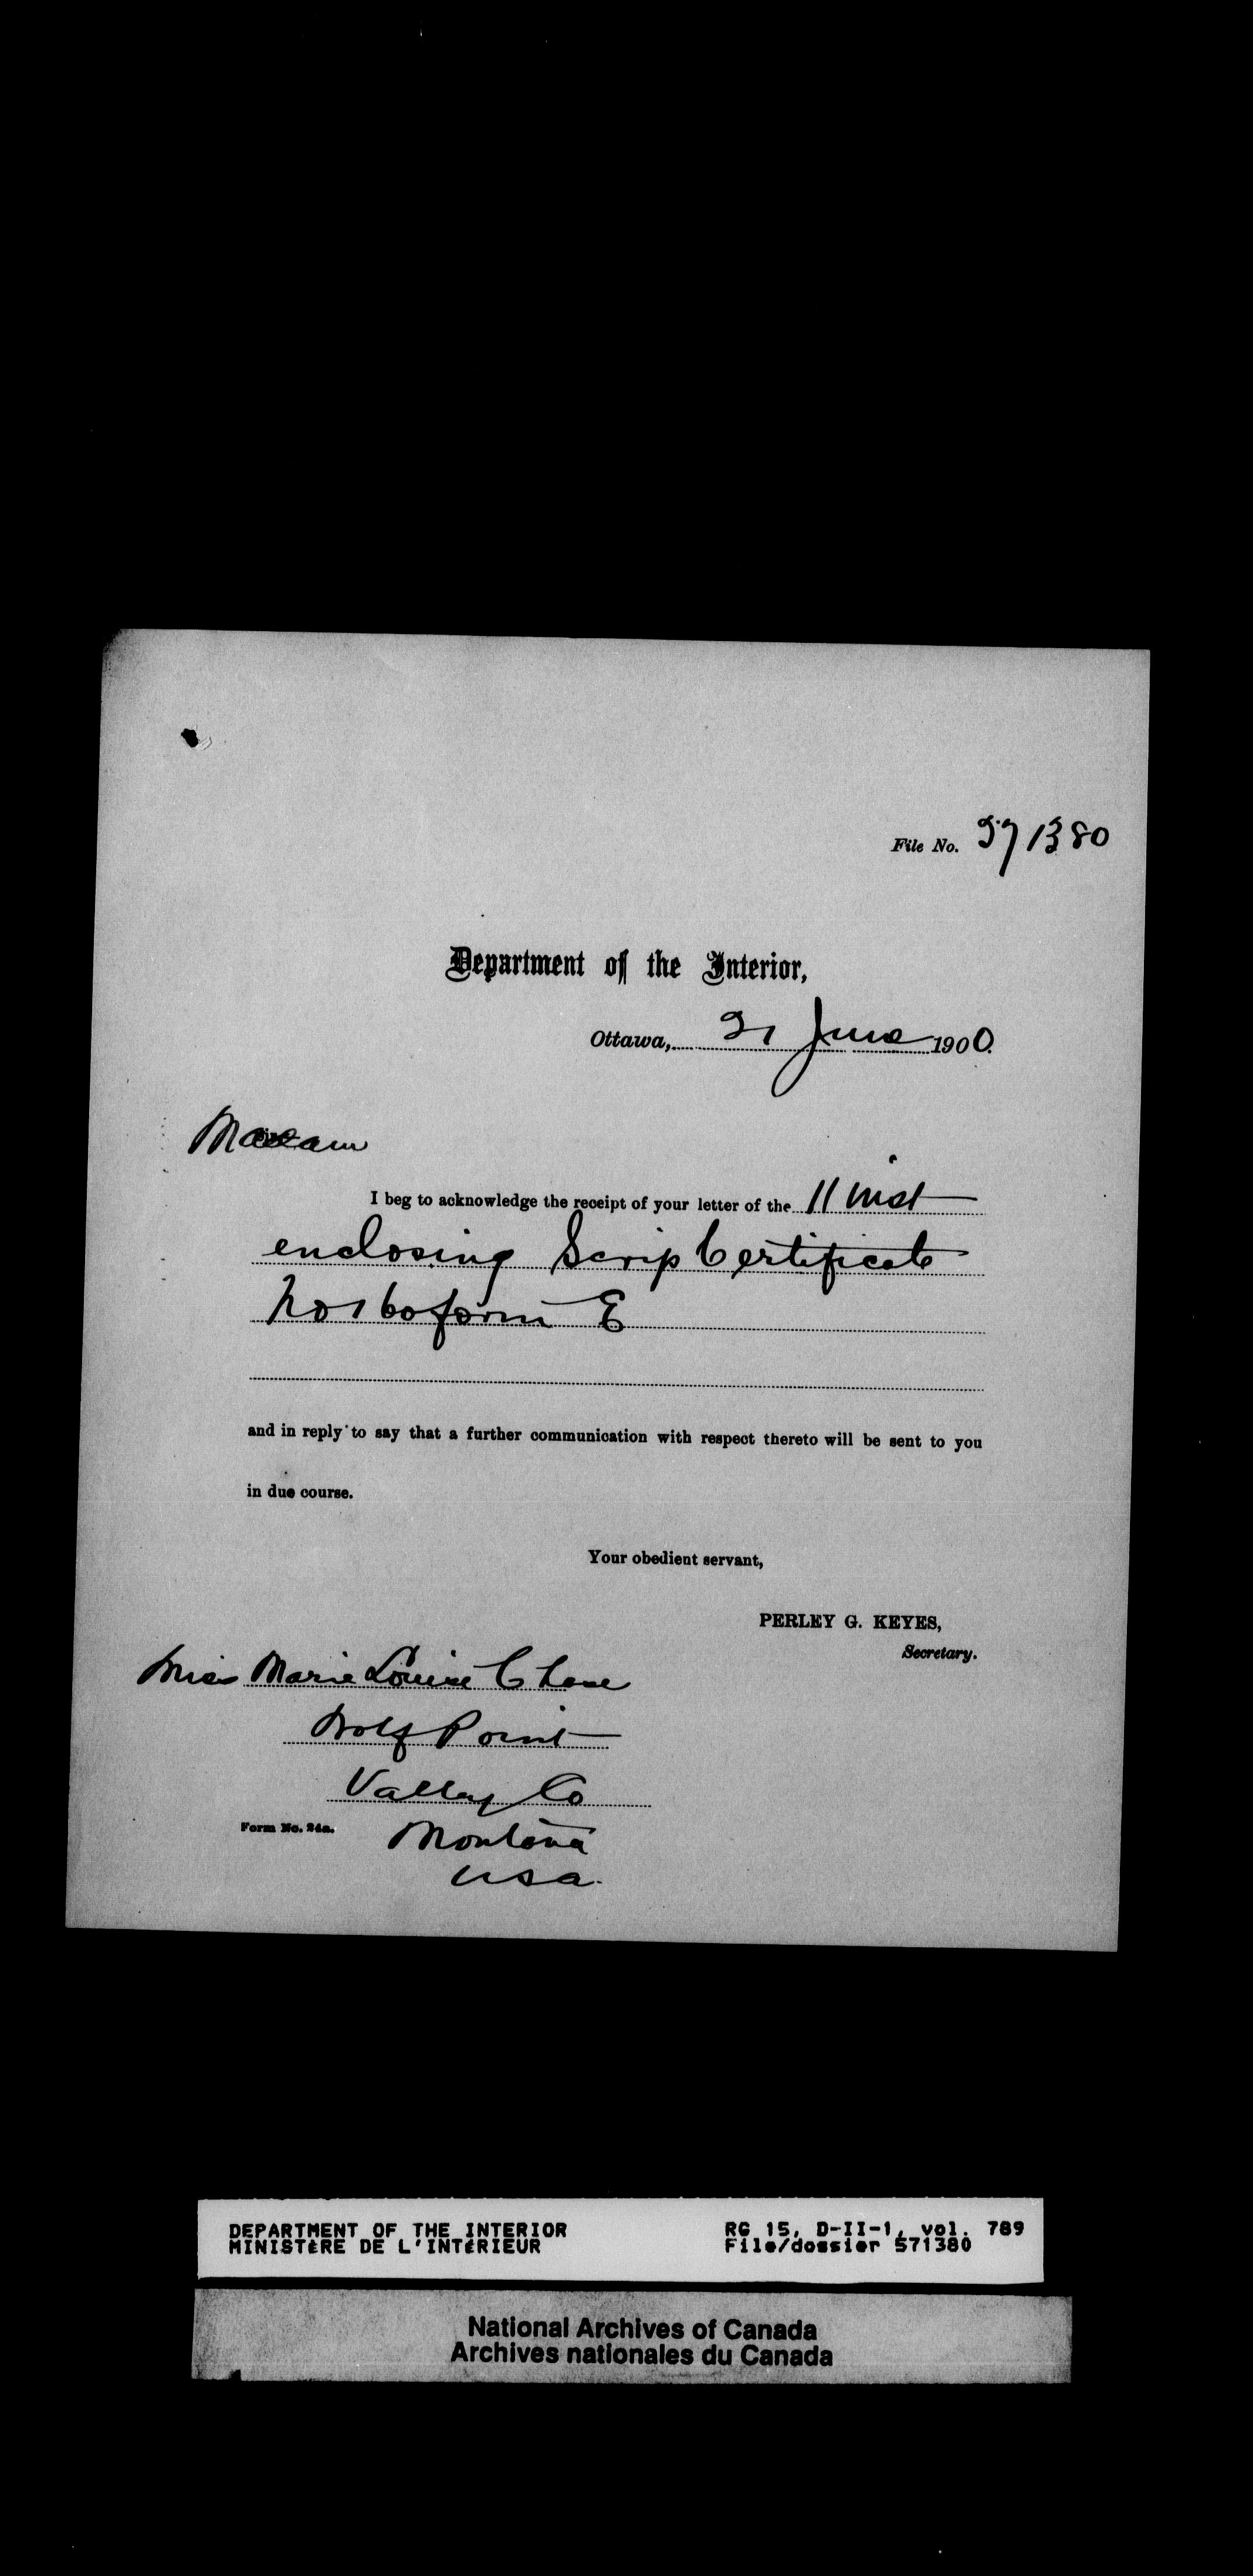 File No. 571380
Department of the Interior,
Ottawa, 21 June 1900.
Madam
I beg to acknowledge the receipt of your letter of the 11 inst
enclosing Scrip Certificate
No 160 form E
and in reply to say that a further communication with respect thereto will be sent to you
in due course.
Your obedient servant,
PERLEY G. KEYES,
Secretary.
Miss Marie Louise Chase
Wolf Point
Valley Co
Form No. 24a.
Montana
USA.
DEPARTMENT OF THE INTERIOR
MINISTÈRE DE L'INTÉRIEUR
RG 15, D-II-1, vol. 789
File/dossier 571380
National Archives of Canada
Archives nationales du Canada